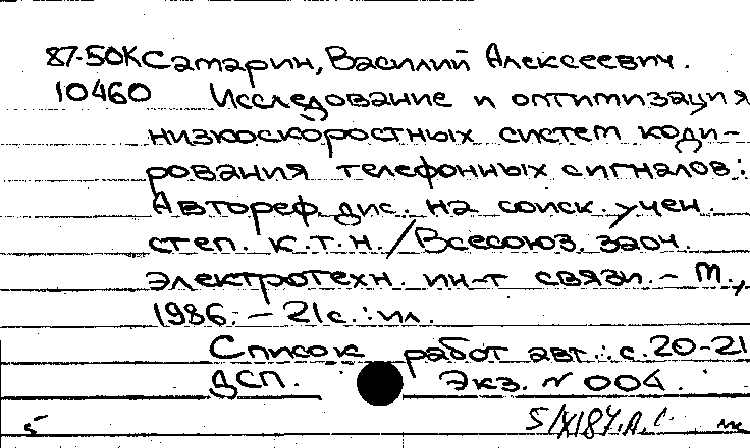 87-50К Самарин, Василий Алексеевич.
10460 Исследование и оптимизация
низкоскоростных систем коди-
рования телефонных сигналов:
Автореф. дис. на соиск. учен.
степ. к.т.н. / Всесоюз. заоч.
электротехн. ин-т связи. - М.,
1986. - 21с.: ил.
Список работ авт.: с. 20-21
ДСП. Экз. N 004.
5